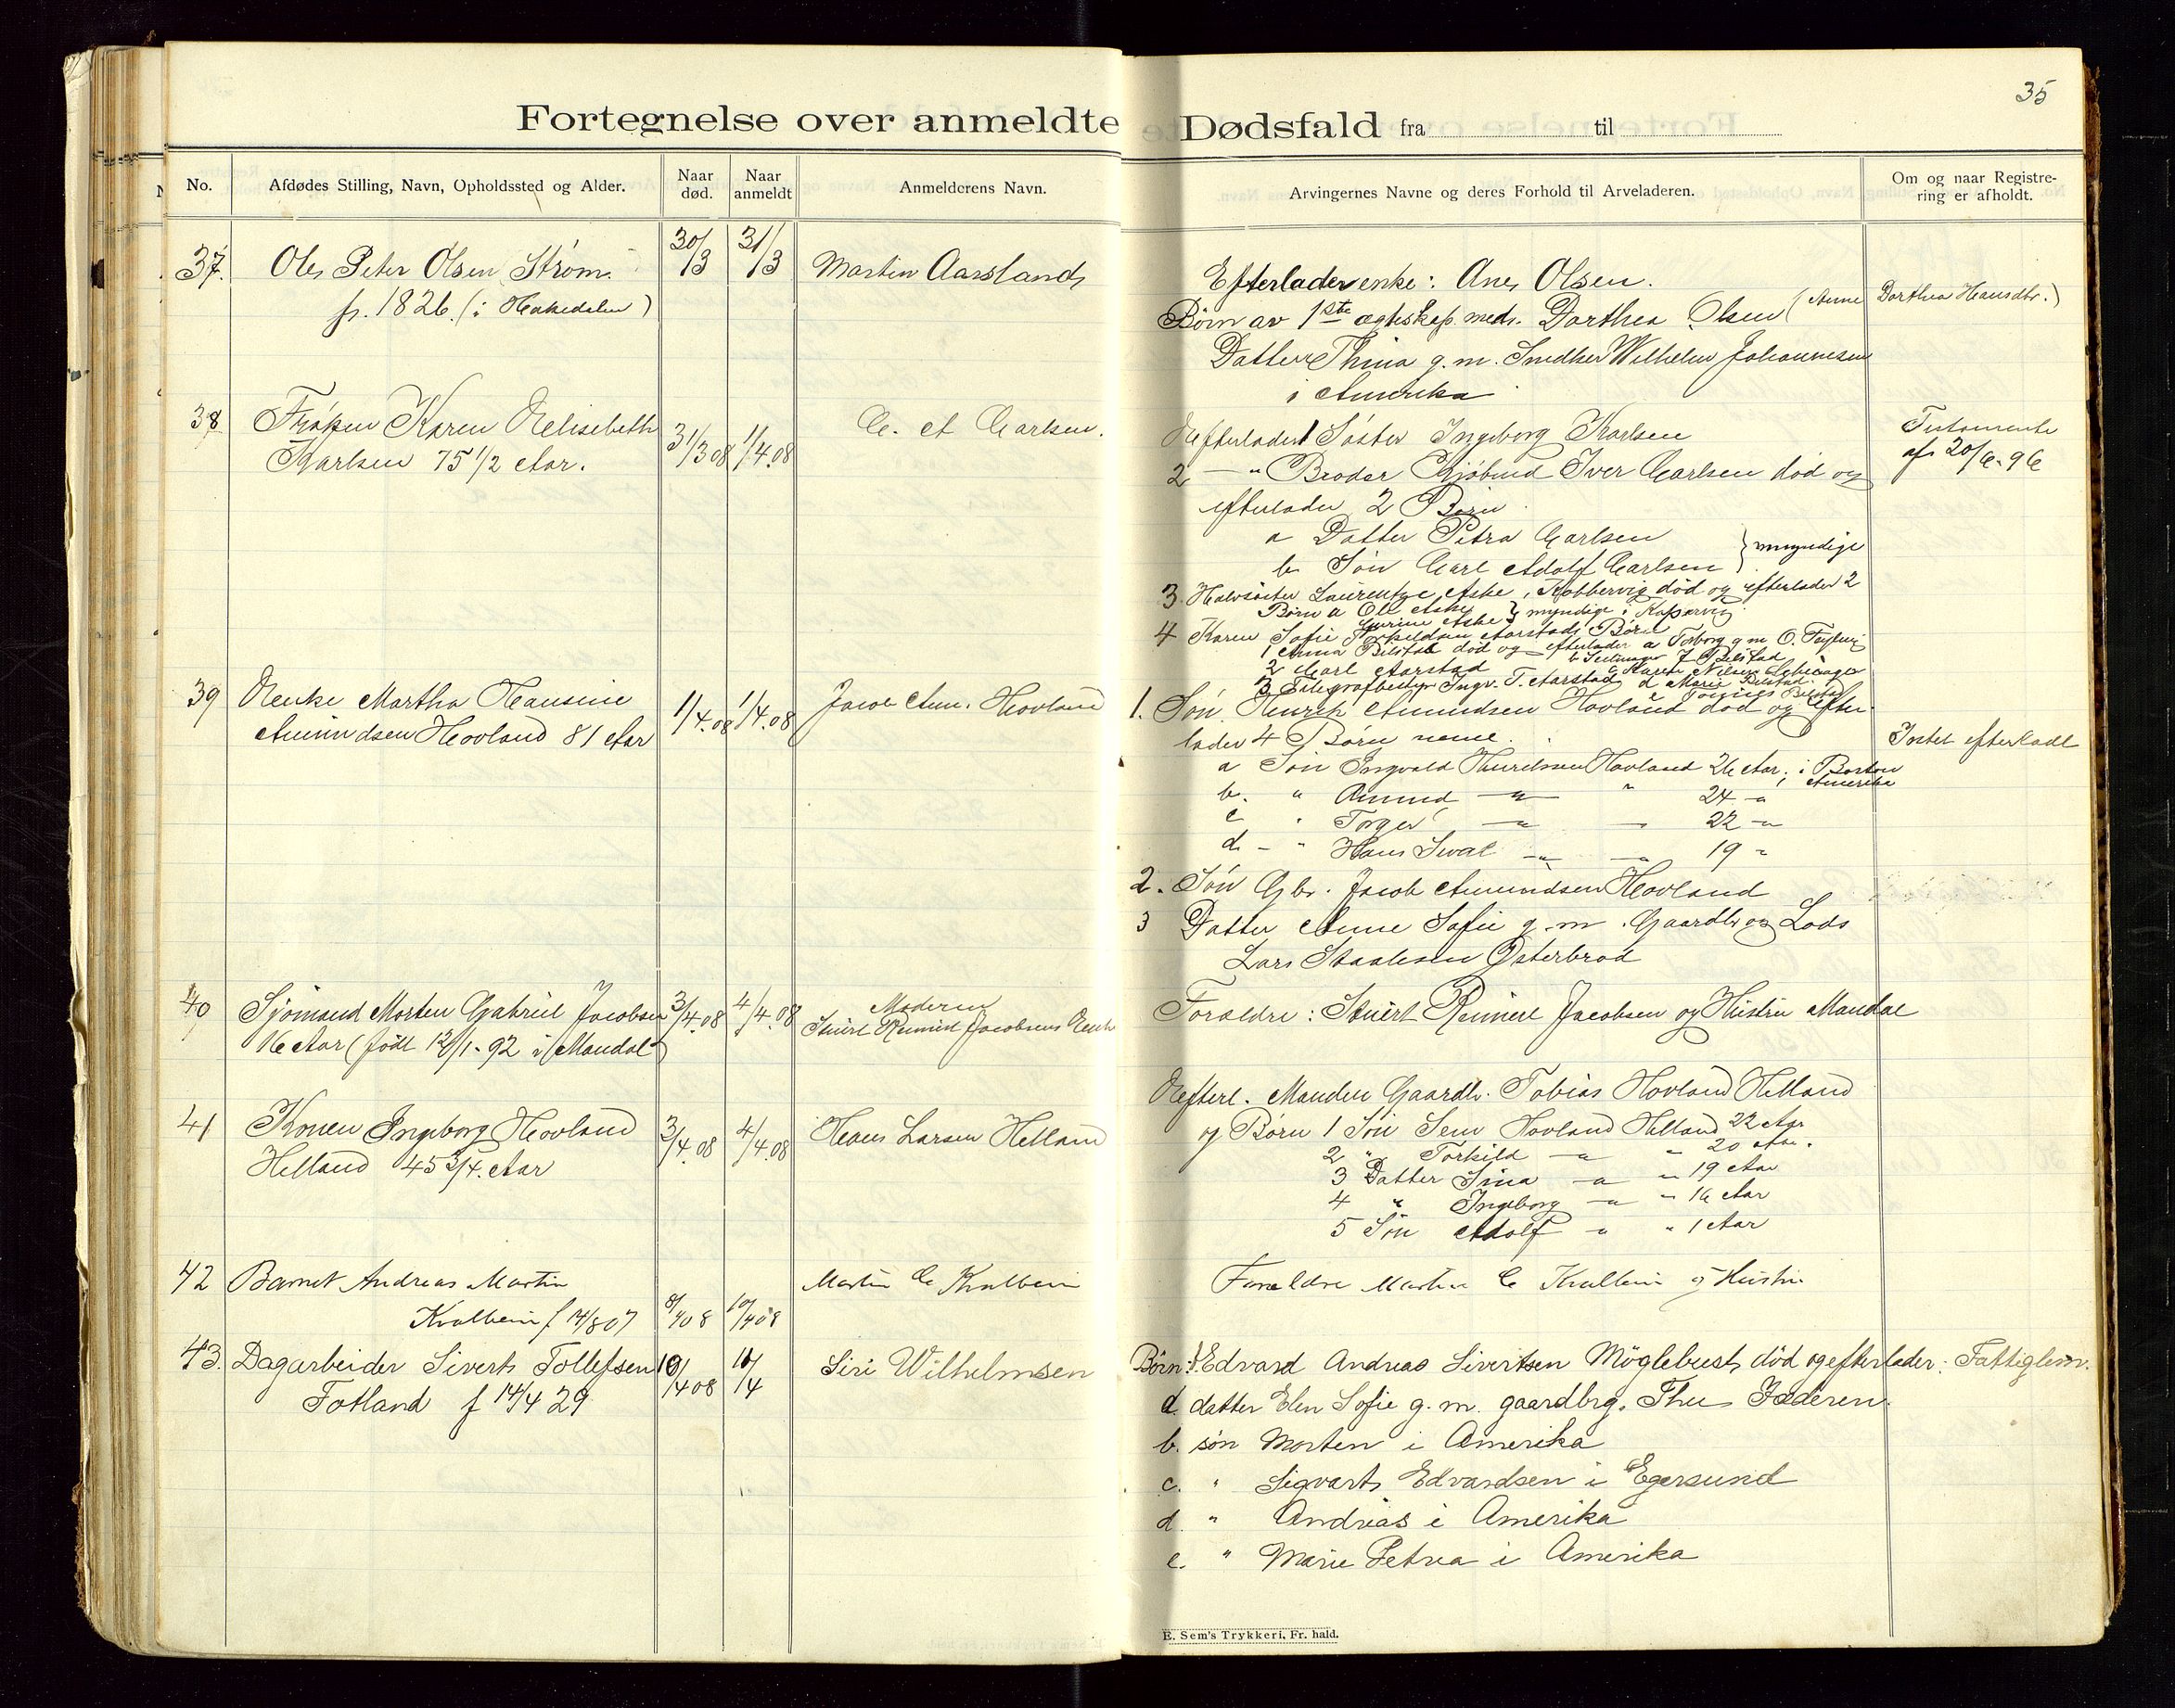 35
Fortegnelse over anmeldte Dødsfald fra til
No.
Afdødes Stilling, Navn, Opholdssted og Alder.
Naar død.
Naar anmeldt
Anmelderens Navn.
Arvingernes Navne og deres Forhold til Arveladeren.
Om og naar Registre-
ring er afholdt.
37. Ole Peter Olsen Strøm 30/3 31/3 Martin Aarstand
f. 1826. (i Hakedalen)
Efterlader enke: Ane Olsen.
Børn av 1ste ægteskap med Dorthea Olsen (Anne Dorthea Hansdtr.)
Datter Thina g.m. Snedker Wilhelm Johannesen
i Amerika
38 Frøken Karen Elisebeth 31/3 08 1/4.08 C. A Carlsen.
Karlsen 75 1/2 Aar.
Efterlader 1 Søster Ingeborg Karlsen
Testamente
af 20/6-96
2 — " Broder Kjøbmd Iver Carlsen død og
efterlader 2 Børn
a Datter Petra Carlsen
b Søn Carl Adolf Carlsen } myndige
3. Halvsøster Laurentze Aske, Kobbervig død og efterlader 2
Børn a Ole Aske Gurine Aske } myndige i Kopervig
4 Karen Sofie Torkildsen Aarstads Børn
1 Anna Bilstad død og efterlader a Torborg g m O.
2 Carl Aarstad
3 Telegrafbestyr Ingv. T. Aarstad d Marie Bilstad
39 Enke Martha Hansine 1/4.08 1/4.08 Jacob Am. Hovland
Amundsen Hovland 81 Aar
1. Søn Henrik Amundsen Hovland død og efter-
lader 4 Børn neml.
Intet efterladt
a Søn Ingvald Henriksen Hovland 26 Aar, i Boston Amerika
b. " Amund — " — " 24 — "
c " Torger — " — 22 — "
d. — " Hans Sival — " — 19 "
2. Søn Gbr. Jacob Amundsen Hovland
3 Datter Anne Sofie g.m. Gaardbr og Lods
Lars Staalesen Østerbrød
40 Sjømand Morten Gabriel Jacobsen 3/4.08 4/4.08 Moderen
16 Aar (født 12/1-92 i Mandal)
Forældre: Stuert Reinert Jacobsen og Hustru Mandal
41 Konen Ingeborg Hovland 3/4.08 4/4.08 Hans Larsen Helland
Helland 45 3/4. Aar
Efterl. Manden Gaardb. Tobias Hovland Helland
og Børn 1 Søn Sem Hovland Helland 22 Aar
2 " Torkild — " " 20 Aar.
3 Datter Sina — " — " 19 Aar
4 " Ingeborg — " — " 16 Aar
5 Søn Adolf " " 1 Aar
42 Barnet Andreas Martin Martin C Kvalbein
Kvalbein f 14/8 07 8/4 08 10/4 08
Forældre Martin C Kvalbein og Hustru
43. Dagarbeider Sivert Tollefsen 10/4 08 11/4 Siri Wilhelmsen
Fotland f 14/4 29
Børn: 1. Edvard Andreas Sivertsen Møglebust, død og efterlader: Fattiglem.
a. datter Elen Sofie g.m. gaardbrg. Thu Jæderen.
b. søn Morten i Amerika
c. " Sigvart Edvardsen i Egersund
d. " Andrias i Amerika
e. " Marie Petrea i Amerika
E. Sem's Trykkeri, Fr. hald.